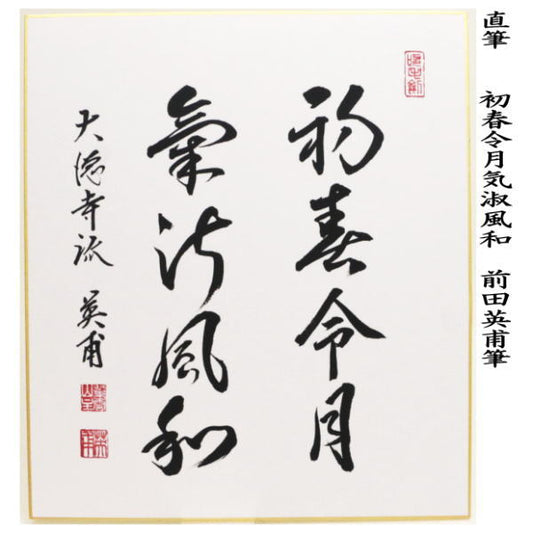 直筆 初春令月気淑風和 前田英甫筆
初春令月
氣淑風和
大徳寺派 英甫